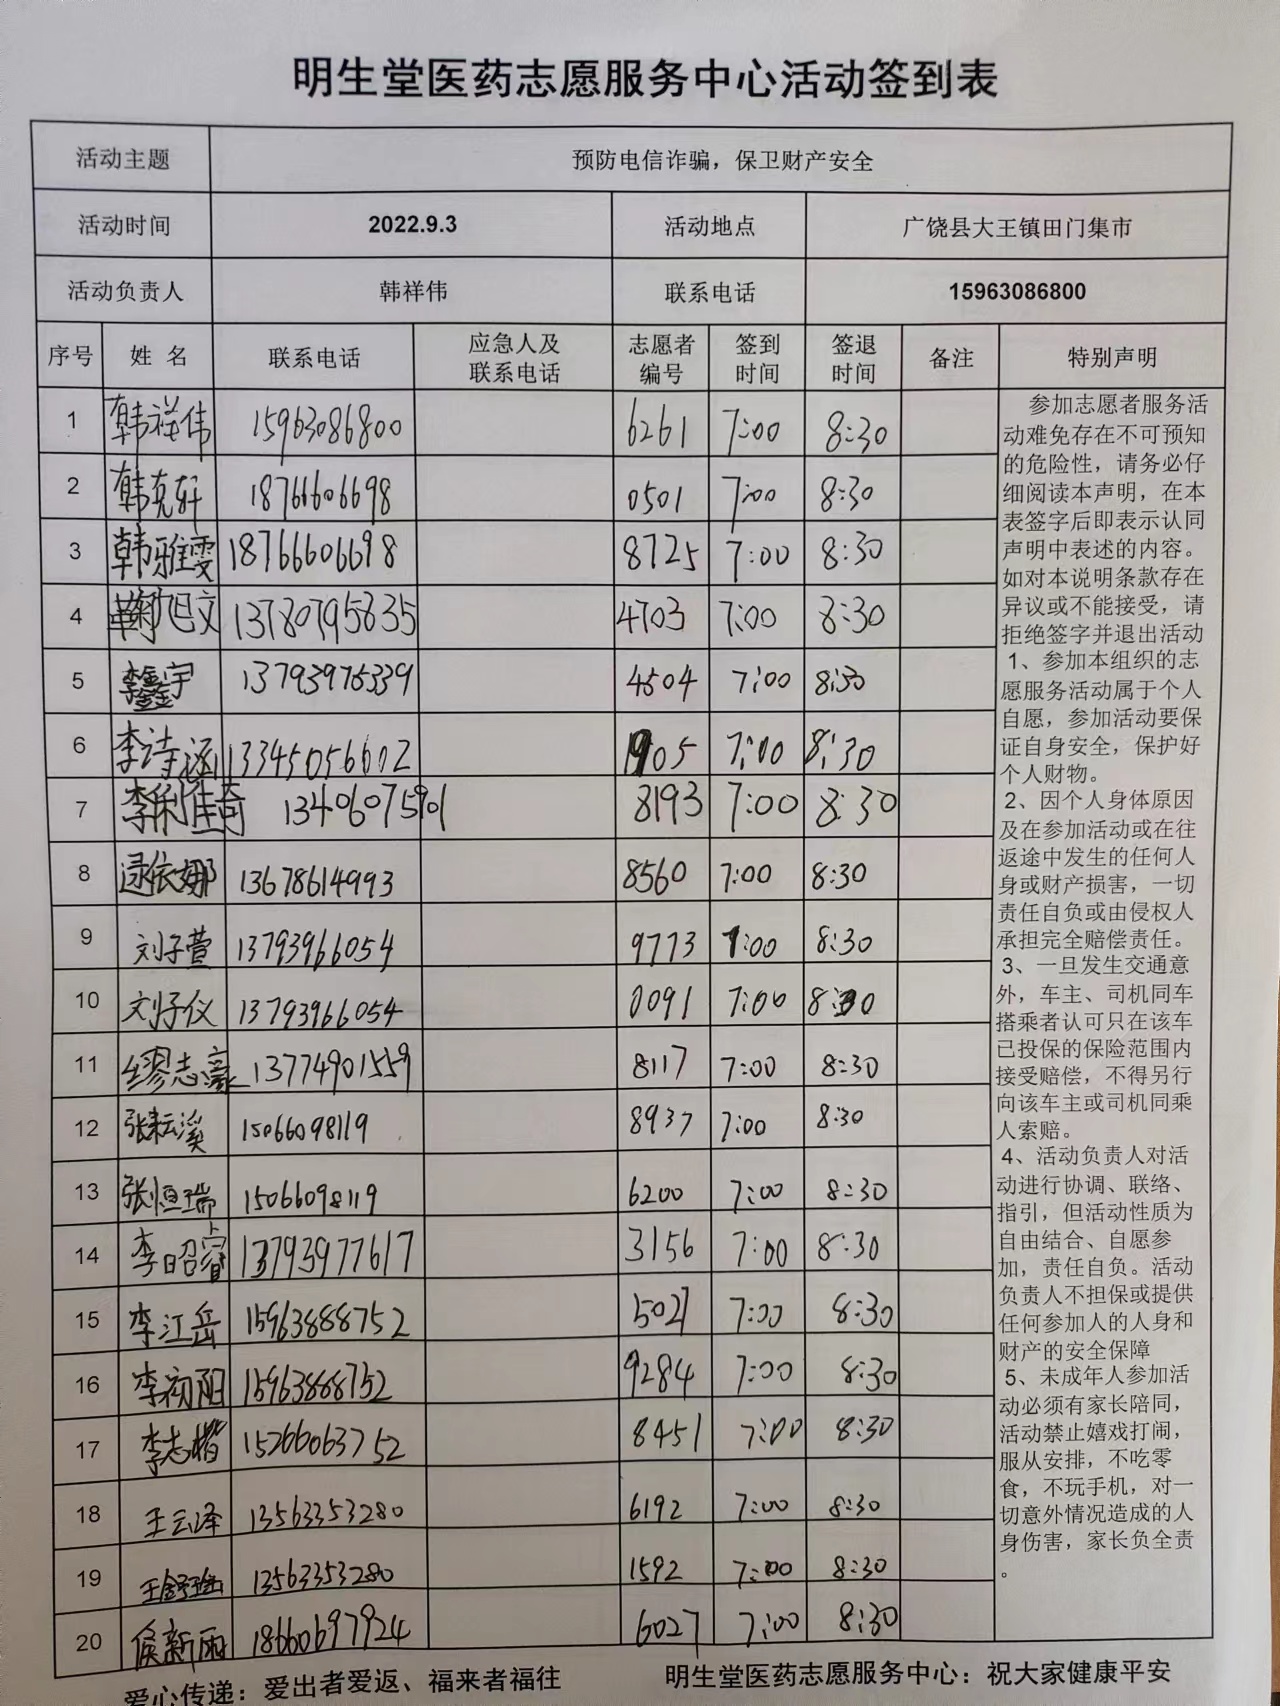 明生堂医药志愿服务中心活动签到表
活动主题 预防电信诈骗，保卫财产安全
活动时间 2022.9.3 活动地点 广饶县大王镇田门集市
活动负责人 韩祥伟 联系电话 15963086800
序号 姓 名 联系电话 应急人及联系电话 志愿者编号 签到时间 签退时间 备注 特别声明
1 韩祥伟 15963086800 6261 7:00 8:30
2 韩克轩 18766606698 0501 7:00 8:30
3 韩雅雯 18766606698 8725 7:00 8:30
4 鞠旭文 13780795835 4703 7:00 8:30
5 李鑫宇 13793975339 4504 7:00 8:30
6 李诗涵 13345056602 1905 7:00 8:30
7 李俐佳奇 13406075901 8193 7:00 8:30
8 逯依娜 13678614993 8560 7:00 8:30
9 刘子萱 13793966054 9773 7:00 8:30
10 刘子仪 13793966054 0091 7:00 8:30
11 缪志豪 13774901559 8117 7:00 8:30
12 张耘溪 15066098119 8937 7:00 8:30
13 张恒瑞 15066098119 6200 7:00 8:30
14 李昭睿 13793977617 3156 7:00 8:30
15 李江岳 15963888752 5027 7:00 8:30
16 李初阳 15963888752 9284 7:00 8:30
17 李志楷 15266063752 8451 7:00 8:30
18 王云泽 13563353280 6192 7:00 8:30
19 王舒瑶 13563353280 1592 7:00 8:30
20 侯新雨 18660697924 6027 7:00 8:30
参加志愿者服务活
动难免存在不可预知
的危险性，请务必仔
细阅读本声明，在本
表签字后即表示认同
声明中表述的内容。
如对本说明条款存在
异议或不能接受，请
拒绝签字并退出活动
1、参加本组织的志
愿服务活动属于个人
自愿，参加活动要保
证自身安全，保护好
个人财物。
2、因个人身体原因
及在参加活动或在往
返途中发生的任何人
身或财产损害，一切
责任自负或由侵权人
承担完全赔偿责任。
3、一旦发生交通意
外，车主、司机同车
搭乘者认可只在该车
已投保的保险范围内
接受赔偿，不得另行
向该车主或司机同乘
人索赔。
4、活动负责人对活
动进行协调、联络、
指引，但活动性质为
自由结合、自愿参
加，责任自负。活动
负责人不担保或提供
任何参加人的人身和
财产的安全保障
5、未成年人参加活
动必须有家长陪同，
活动禁止嬉戏打闹，
服从安排，不吃零
食，不玩手机，对一
切意外情况造成的人
身伤害，家长负全责
。
爱心传递：爱出者爱返、福来者福往 明生堂医药志愿服务中心：祝大家健康平安